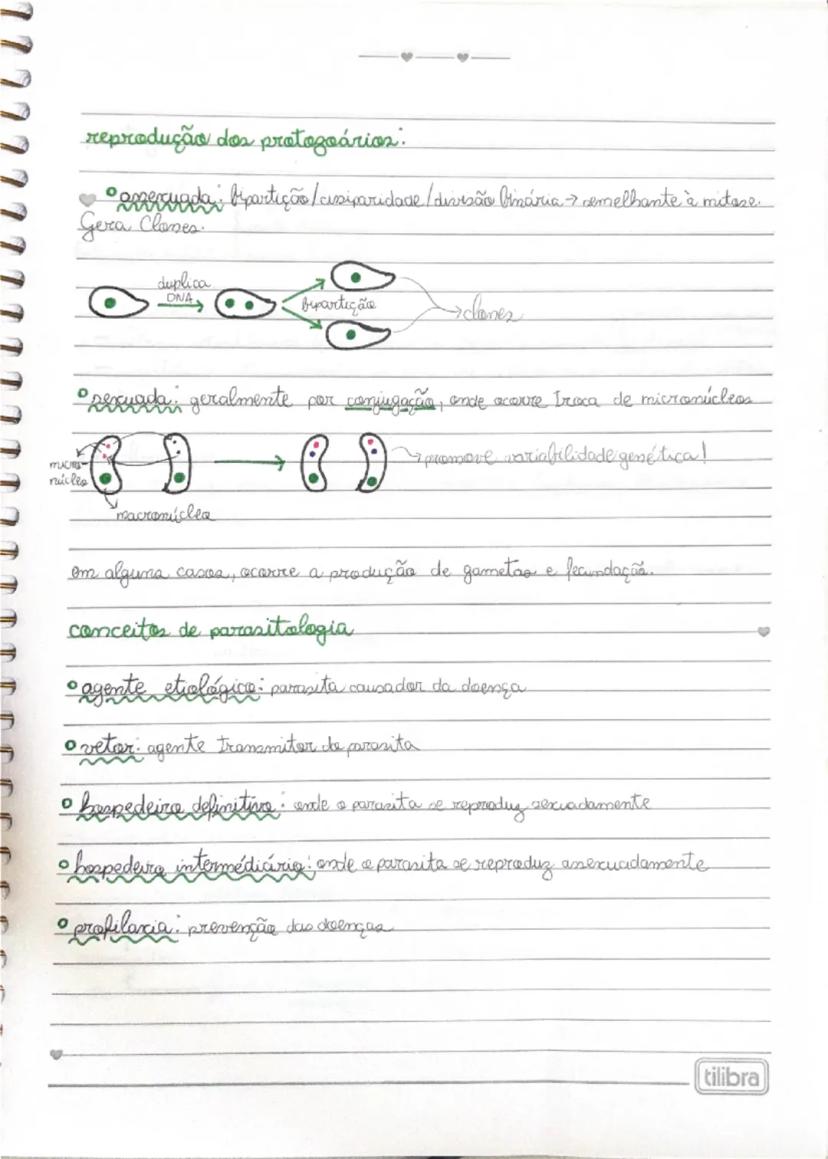 reprodução dos protozoários:
assexuada: bipartição/cissiparidade/divisão binária → semelhante à mitose.
Gera Clones.
duplica
DNA
bipartição
clones
sexuada: geralmente por conjugação, onde ocorre troca de micronúcleos
micro-
núcleo
promove variabilidade genética!
macronúcleo
em alguns casos, ocorre a produção de gametas e fecundação.
conceitos de parasitologia
agente etiológico: parasita causador da doença
vetor: agente transmitor do parasita
hospedeiro definitivo: onde o parasita se reproduz sexuadamente
hospedeiro intermédiário: onde o parasita se reproduz assexuadamente
profilaxia: prevenção das doenças
tilibra